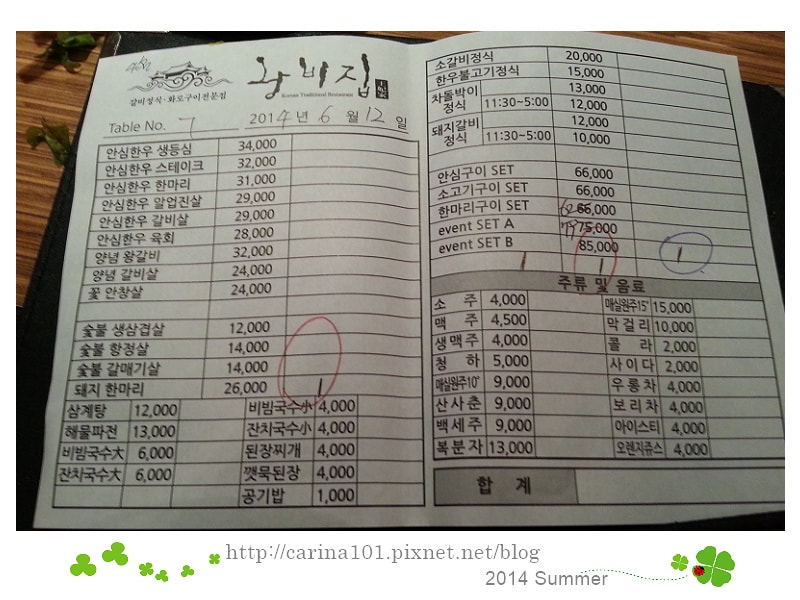 왕비집
Korean Traditional Restaurant
갈비정식·화로구이전문점
Table No. 7 2014년 6월 12일
안심한우 생등심 34,000
안심한우 스테이크 32,000
안심한우 한마리 31,000
안심한우 알업진살 29,000
안심한우 갈비살 29,000
안심한우 육회 28,000
양념 왕갈비 32,000
양념 갈비살 24,000
꽃 안창살 24,000
숯불 생삼겹살 12,000
숯불 항정살 14,000
숯불 갈매기살 14,000
돼지 한마리 26,000 1
삼계탕 12,000 비빔국수小 4,000
해물파전 13,000 잔치국수小 4,000
비빔국수大 6,000 된장찌개 4,000
잔치국수大 6,000 깻묵된장 4,000
공기밥 1,000
소갈비정식 20,000
한우불고기정식 15,000
차돌박이정식 13,000
11:30~5:00 12,000
돼지갈비정식 12,000
11:30~5:00 10,000
안심구이 SET 66,000
소고기구이 SET 66,000
한마리구이 SET 66,000
event SET A 75,000
event SET B 85,000
1 1 1
주류 및 음료
소 주 4,000 매실원주15˚ 15,000
맥 주 4,500 막걸리 10,000
생맥주 4,000 콜 라 2,000
청 하 5,000 사이다 2,000
매실원주10˚ 9,000 우롱차 4,000
산사춘 9,000 보리차 4,000
백세주 9,000 아이스티 4,000
복분자 13,000 오렌지쥬스 4,000
합 계
http://carina101.pixnet.net/blog
2014 Summer